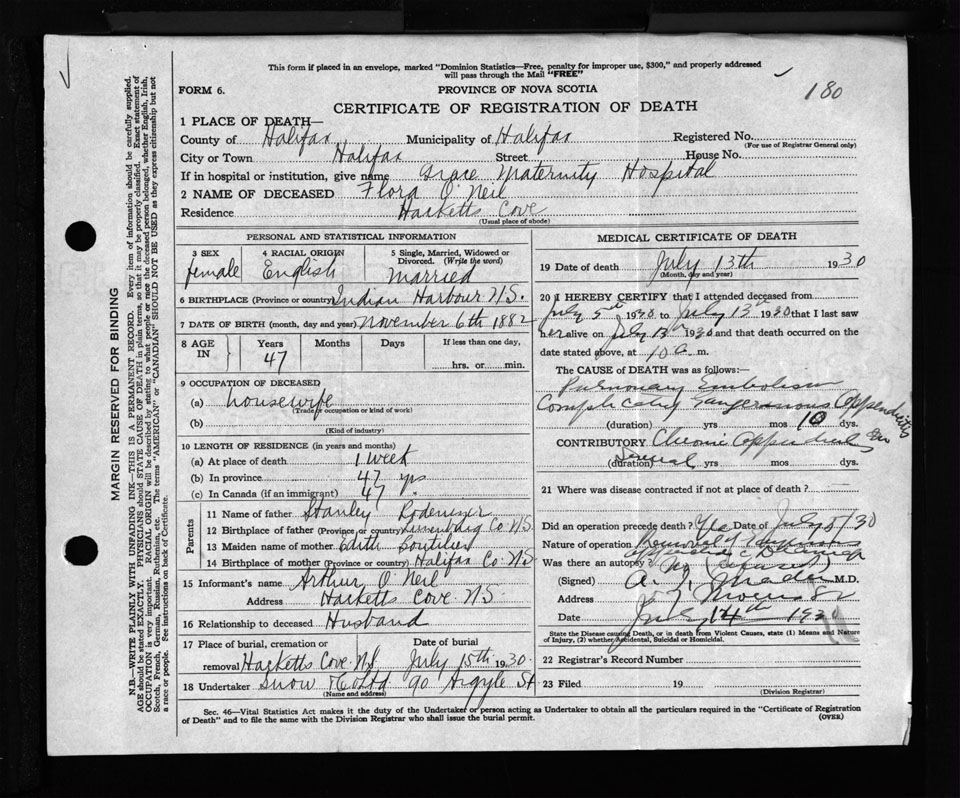 This form if placed in an envelope, marked "Dominion Statistics—Free, penalty for improper use, $300," and properly addressed
will pass through the Mail "FREE"
180
FORM 6.
PROVINCE OF NOVA SCOTIA
CERTIFICATE OF REGISTRATION OF DEATH
1 PLACE OF DEATH—
County of Halifax Municipality of Halifax Registered No.
(For use of Registrar General only)
City or Town Halifax Street House No.
If in hospital or institution, give name Grace Maternity Hospital
2 NAME OF DECEASED Flora O'Neil
Residence Hacketts Cove
(Usual place of abode)
PERSONAL AND STATISTICAL INFORMATION
3 SEX female
4 RACIAL ORIGIN English
5 Single, Married, Widowed or Divorced. (Write the word) Married
6 BIRTHPLACE (Province or country) Indian Harbour N.S.
7 DATE OF BIRTH (month, day and year) November 6th 1882
8 AGE IN Years Months Days If less than one day,
47 hrs. or min.
9 OCCUPATION OF DECEASED
(a) housewife
(Trade or occupation or kind of work)
(b)
(Kind of industry)
10 LENGTH OF RESIDENCE (in years and months)
(a) At place of death 1 week
(b) In province 47 yrs
(c) In Canada (if an immigrant) 47 "
Parents
11 Name of father Stanley Rodeniser
12 Birthplace of father (Province or country) Lunenburg Co N.S
13 Maiden name of mother Edith Boutilier
14 Birthplace of mother (Province or country) Halifax Co N.S
15 Informant's name Arthur O'Neil
Address Hacketts Cove N.S
16 Relationship to deceased Husband
17 Place of burial, cremation or Date of burial
removal Hacketts Cove N.S. July 15th 1930
18 Undertaker Snow & Co Ltd 90 Argyle St
(Name and address)
MEDICAL CERTIFICATE OF DEATH
19 Date of death July 13th 1930
(Month, day and year)
20 I HEREBY CERTIFY that I attended deceased from
July 5th 1930 to July 13th 1930 that I last saw
her alive on July 13th 1930 and that death occurred on
date stated above, at 10 a m.
The CAUSE of DEATH was as follows:—
Pulmonary Embolism
Complicating Gangrenous Appendicitis
(duration) yrs mos 10 dys.
CONTRIBUTORY Chronic Appendicitis
(duration) Several yrs mos dys.
21 Where was disease contracted if not at place of death?
Did an operation precede death? Yes Date of July 5/30
Nature of operation Removal of
Drainage
Was there an autopsy? No
(Signed) A. M.D.
Address
Date July 14th 1930
State the Disease causing Death, or in death from Violent Causes, state (1) Means and Nature of Injury, (2) whether Accidental, Suicidal or Homicidal.
22 Registrar's Record Number
23 Filed 19
(Division Registrar)
Sec. 46—Vital Statistics Act makes it the duty of the Undertaker or person acting as Undertaker to obtain all the particulars required in the "Certificate of Registration
of Death" and to file the same with the Division Registrar who shall issue the burial permit.
(OVER)
MARGIN RESERVED FOR BINDING
N.B.—WRITE PLAINLY WITH UNFADING INK—THIS IS A PERMANENT RECORD. Every item of information should be carefully supplied.
AGE should be stated EXACTLY. PHYSICIANS should STATE CAUSE OF DEATH in plain terms, so that it may be properly classified. Exact statement of
OCCUPATION is very important. RACIAL ORIGIN will be described by stating to what people or race the deceased person belonged, whether English, Irish,
Scotch, French, German, Russian, Ruthenian, etc. The terms "AMERICAN" or "CANADIAN" SHOULD NOT BE USED as they express citizenship but not
a race or people. See instructions on back of Certificate.